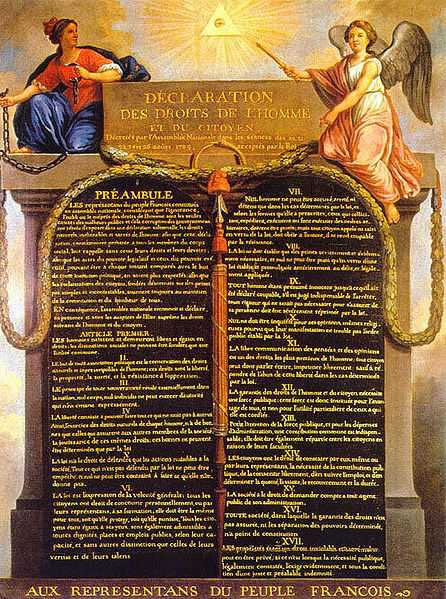 DÉCLARATION
DES DROITS DE L'HOMME
ET DU CITOYEN,
Décrétés par l'Assemblée Nationale dans les séances des 20, 21,
23, 24 et 26 août 1789, acceptés par le Roi
PRÉAMBULE
LES représentans du peuple François, constitués
en assemblée nationale, considérant que l'ignorance,
l'oubli ou le mépris des droits de l'homme sont les seules
causes des malheurs publics et de la corruption des gouvernemens
ont résolu d'exposer dans une déclaration solemnelle, les droits
naturels, inaliénables et sacrés de l'homme; afin que cette décla-
ration, constamment présente à tous les membres du corps
social, leur rappelle sans cesse leurs droits et leurs devoirs;
afin que les actes du pouvoir législatif et ceux du pouvoir exé-
cutif, pouvant être à chaque instant comparés avec le but
de toute institution politique, en soient plus respectés; afin que
les réclamations des citoyens, fondées désormais sur des princi-
pes simples et incontestables, tournent toujours au maintien
de la constitution et du bonheur de tous.
EN conséquence, l'assemblée nationale reconnoit et déclare,
en présence et sous les auspices de l'Etre suprême les droits
suivans de l'homme et du citoyen.
ARTICLE PREMIER.
LES hommes naissent et demeurent libres et égaux en
droits; les distinctions sociales ne peuvent être fondées que sur
l'utilité commune.
II.
LE but de toute association politique est la conservation des droits
naturels et imprescriptibles de l'homme; ces droits sont la liberté,
la propriété, la sureté, et la résistance à l'oppression.
III.
LE principe de toute souveraineté réside essentiellement dans
la nation, nul corps, nul individu ne peut exercer d'autorité
qui n'en émane expressément.
IV.
LA liberté consiste à pouvoir faire tout ce qui ne nuit pas à autrui.
Ainsi, l'exercice des droits naturels de chaque homme, n'a de bor-
nes que celles qui assurent aux autres membres de la société
la jouissance de ces mêmes droits; ces bornes ne peuvent
être déterminées que par la loi.
V.
LA loi n'a le droit de défendre que les actions nuisibles à la
société. Tout ce qui n'est pas défendu par la loi ne peut être
empêché, et nul ne peut être contraint à faire ce qu'elle n'or-
donne pas.
VI.
LA loi est l'expression de la volonté générale; tous les
citoyens ont droit de concourir personnellement, ou par
leurs représentans, à sa formation; elle doit être la même
pour tous, soit qu'elle protege, soit qu'elle punisse. Tous les cito-
yens étant égaux à ses yeux, sont également admissibles à
toutes dignités, places et emplois publics, selon leur ca-
pacité, et sans autres distinctions que celles de leurs
vertus et de leurs talens.
VII.
NUL homme ne peut être accusé, arrêté, ni
détenu que dans les cas déterminés par la loi, et
selon les formes qu'elle a prescrites, ceux qui sollici-
tent, expédient, exécutent ou font exécuter des ordres ar-
bitraires, doivent être punis; mais tout citoyen appelé ou saisi
en vertu de la loi, doit obéir à l'instant, il se rend coupable
par la résistance.
VIII.
LA loi ne doit établir que des peines strictement et évidem-
ment nécessaires, et nul ne peut être puni qu'en vertu d'une
loi établie et promulguée antérieurement au délit, et légale-
ment appliquée.
IX.
TOUT homme étant présumé innocent jusqu'à ce qu'il ait
été déclaré coupable, s'il est jugé indispensable de l'arrêter,
toute rigueur qui ne seroit pas nécessaire pour s'assurer de
sa personne doit être sévèrement réprimée par la loi.
X.
NUL ne doit être inquiété pour ses opinions, mêmes religi-
euses pourvu que leur manifestation ne trouble pas l'ordre
public établi par la loi.
XI.
LA libre communication des pensées et des opinions
est un des droits les plus précieux de l'homme; tout citoyen
peut donc parler, écrire, imprimer librement, sauf à ré-
pondre de l'abus de cette liberté dans les cas déterminés
par la loi.
XII.
LA garantie des droits de l'homme et du citoyen nécessite
une force publique; cette force est donc instituée pour l'avan-
tage de tous, et non pour l'utilité particulière de ceux à qui
elle est confiée.
XIII.
POUR l'entretien de la force publique, et pour les dépenses
d'administration, une contribution commune est indispen-
sable; elle doit être également répartie entre les citoyens en
raison de leurs facultés.
XIV.
LES citoyens ont le droit de constater par eux même ou
par leurs représentans, la nécessité de la contribution pub-
lique, de la consentir librement, d'en suivre l'emploi, et d'en
déterminer la quotité, l'assiette, le recouvrement et la durée.
XV.
LA société a le droit de demander compte à tout agent
public de son administration.
XVI.
TOUTE société, dans laquelle la garantie des droits n'est
pas assurée, ni la séparation des pouvoirs déterminée,
n'a point de constitution.
XVII.
LES propriétés étant un droit inviolable et sacré, nul ne
peut en être privé, si ce n'est lorsque la nécessité publique,
légalement constatée, l'exige évidemment, et sous la condi-
tion d'une juste et préalable indemnité.
AUX REPRESENTANS DU PEUPLE FRANCOIS